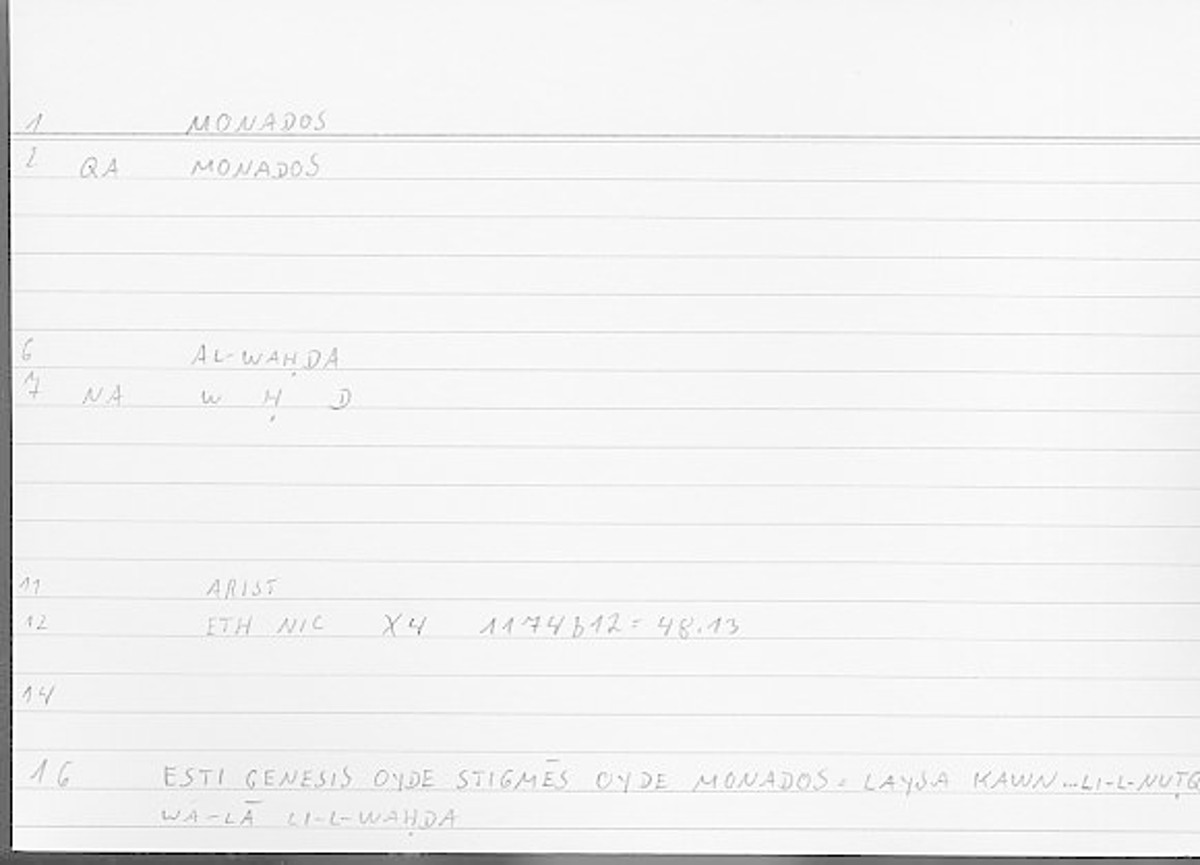 1 MONADOS
2 QA MONADOS
6 AL-WAḤDA
7 NA W Ḥ D
11 ARIST
12 ETH NIC X4 1174b12 = 48.13
14
16 ESTI GENESIS OYDE STIGMĒS OYDE MONADOS = LAYSA KAWN...LI-L-NUṬQ
WA-LĀ LI-L-WAḤDA